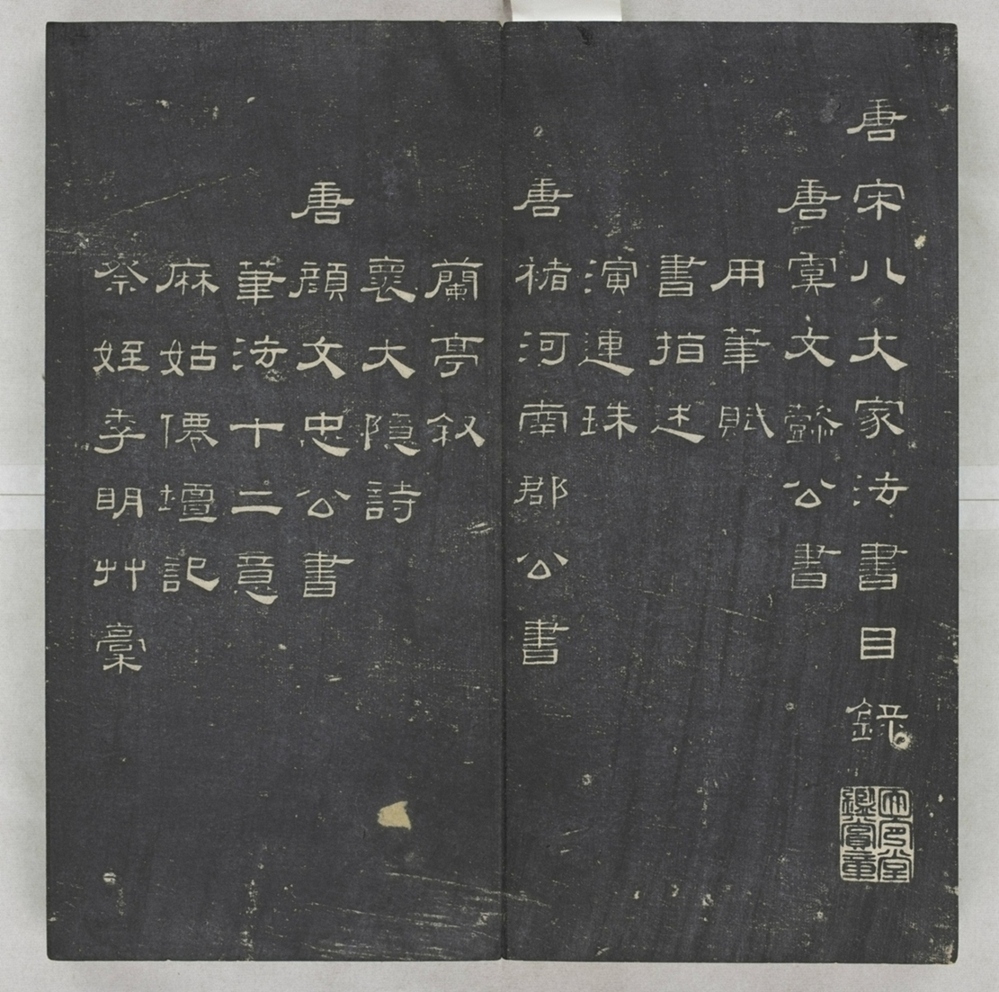 唐宋八大家法書目錄
唐虞文懿公書
用筆賦
書指述
演連珠
唐褚河南郡公書
蘭亭叙
大隱詩
唐顏文忠公書
筆法十二意
麻姑僊壇記
祭姪季明艸稾
堂鑑賞章